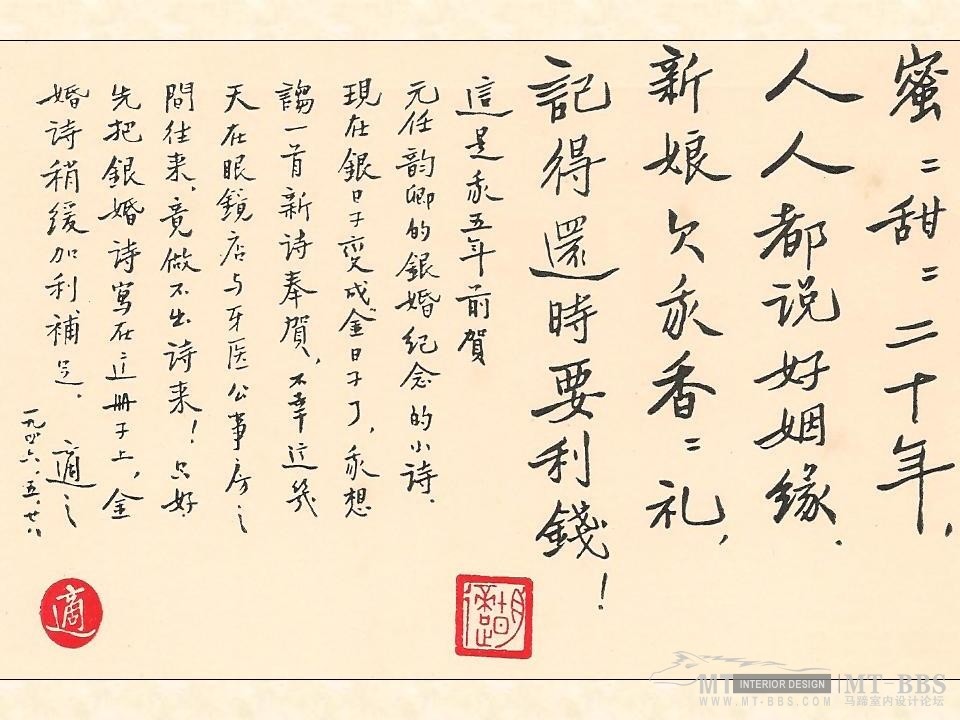 蜜〻甜〻二十年，
人人都说好姻缘．
新娘欠我香〻礼，
記得還時要利錢！
這是我五年前賀
元任韵卿的銀婚紀念的小诗．
現在銀日子变成金日子了，我想
謅一首新诗奉賀，不幸这幾
天在眼鏡店与牙医公事房之
間往来，竟做不出诗来！只好
先把銀婚诗寫在这册子上，金
婚诗稍緩加利補足． 適之
一九四六．五．廿八
適
胡適之
MT INTERIOR DESIGN MT-BBS
WWW.MT-BBS.COM 马蹄室内设计论坛